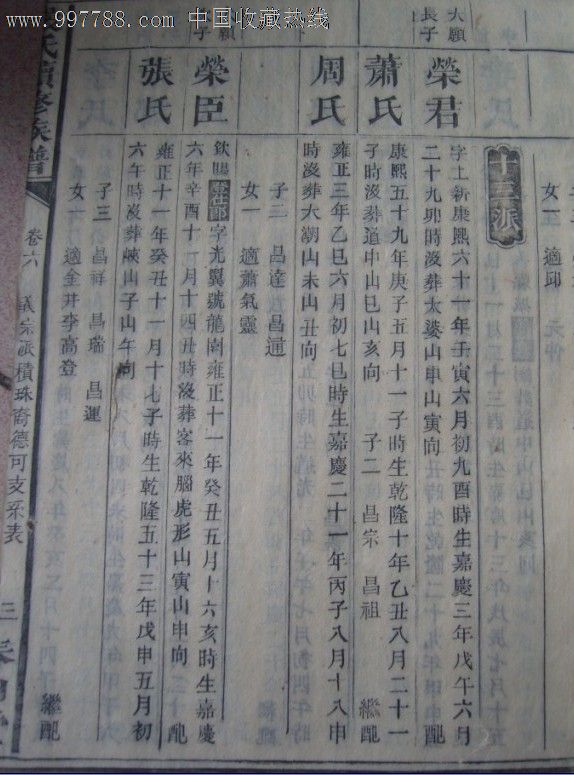 www.997788.com 中国收藏热线
女一 適邱
十三派
大願長子
榮君
字上新康熙六十一年壬寅六月初九酉時生嘉慶三年戊午六月
二十九卯時沒葬太婆山申山寅向 繼配
蕭氏
康熙五十九年庚子五月十一子時生乾隆十年乙丑八月二十一
子時沒葬道中山巳山亥向 子二 昌宗 昌祖 繼配
周氏
雍正三年乙巳六月初七巳時生嘉慶二十一年丙子八月十八申
時沒葬大湖山未山丑向
子二 昌達 昌通
女一 適蕭氣靈
榮臣
欽賜 字光翼號龍園雍正十一年癸丑五月十六亥時生嘉慶
六年辛酉十一月十四丑時沒葬客來腦虎形山寅山申向 配
張氏
雍正十一年癸丑十一月十七子時生乾隆五十三年戊申五月初
六午時沒葬峽山子山午向
子三 昌祥 昌瑞 昌運
女一 適金井李高登 繼配
氏續修族譜
卷六
義宗派積珠裔德可支系表
三